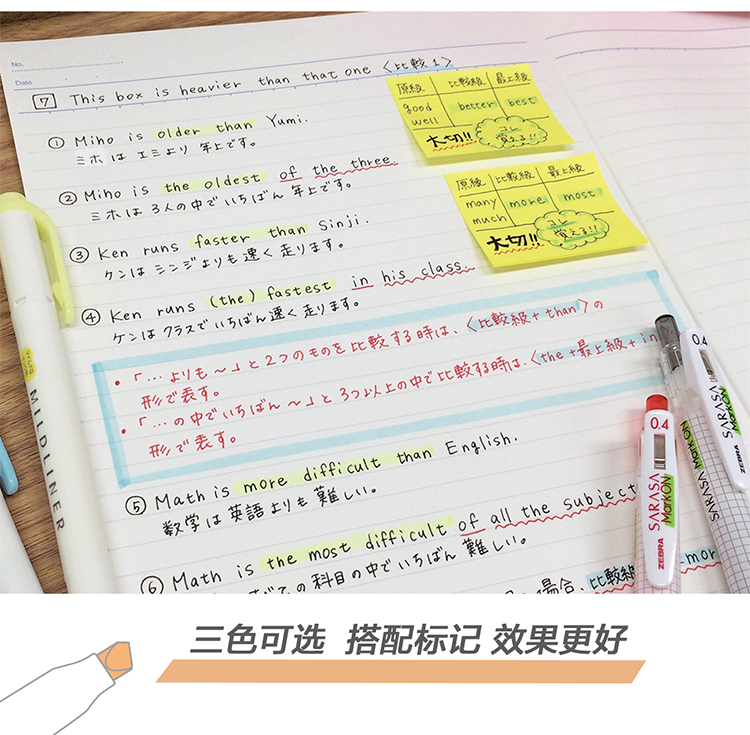 No.
Date
7 This box is heavier than that one 〈比較1〉
原級 比較級 最上級
good better best
well
大切!! コレ
覚える!!
① Miho is older than Yumi.
ミホは エミより 年上です。
② Miho is the oldest of the three.
ミホは 3人の中でいちばん 年上です。
原級 比較級 最上級
many more most
much
大切!! コレ
覚える!!
③ Ken runs faster than Sinji.
ケンは シンジよりも 速く 走ります。
④ Ken runs (the) fastest in his class.
ケンは クラスでいちばん 速く 走ります。
・「…よりも～」と2つのものを比較する時は、〈比較級+than〉の
形で表す。
・「…の中でいちばん～」と3つ以上の中で比較する時は、〈the+最上級+in
形で表す。
⑤ Math is more difficult than English.
数学は 英語よりも 難しい。
⑥ Math is the most difficult of all the subject
べての科目の中でいちばん 難しい。
場合、比較級 more
MILDLINER
0.4
SARASA
MarkON
ZEBRA
0.4
SARASA
MarkON
三色可选 搭配标记 效果更好